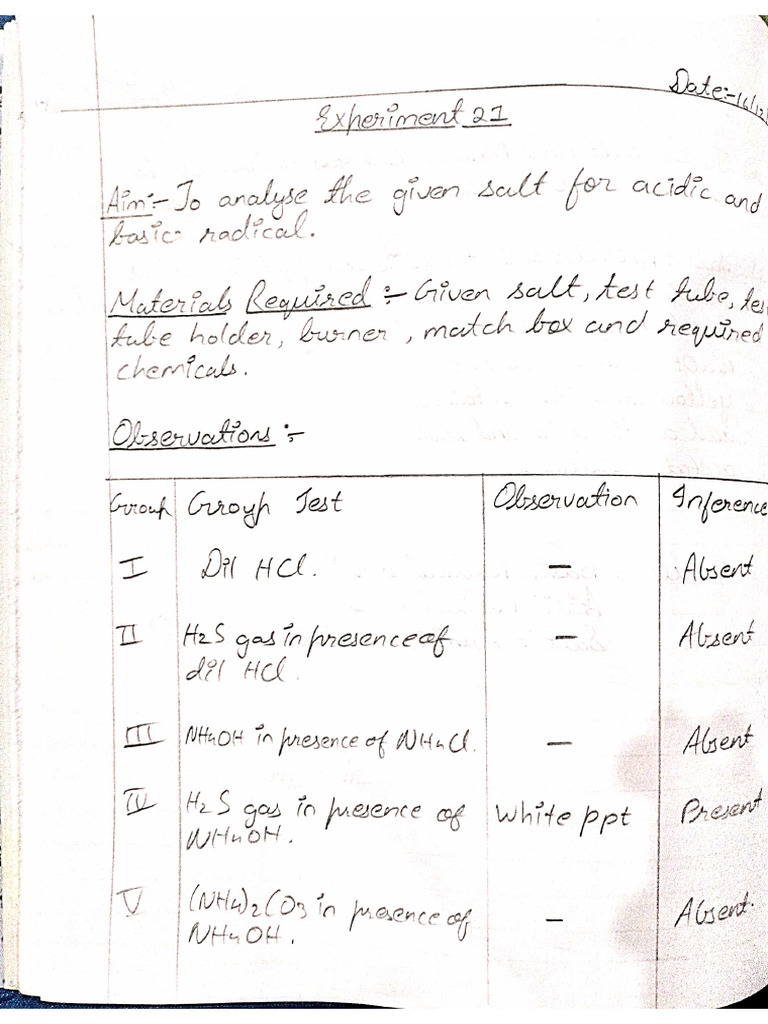 Date:-16/12/
Experiment 21
Aim:- To analyse the given salt for acidic and
basic radical.
Materials Required :- Given salt, test tube, tes
tube holder, burner, match box and required
chemicals.
Observations :-
Group Group Test Observation Inference
I Dil HCl. - Absent
II H2S gas in presence of - Absent
dil HCl.
III NH4OH in presence of NH4Cl. - Absent
IV H2S gas in presence of White ppt Present
NH4OH.
V (NH4)2CO3 in presence of - Absent.
NH4OH.